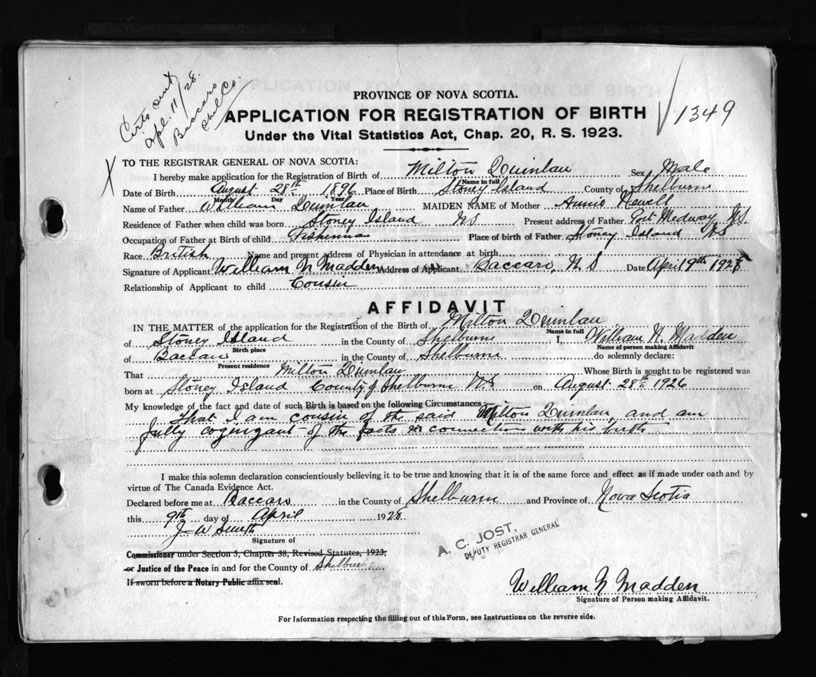 Certs sent
Apl. 11/28.
Baccaro
Shel Co.
1349
PROVINCE OF NOVA SCOTIA.
APPLICATION FOR REGISTRATION OF BIRTH
Under the Vital Statistics Act, Chap. 20, R. S. 1923.
X
TO THE REGISTRAR GENERAL OF NOVA SCOTIA:
I hereby make application for the Registration of Birth of Milton Quinlan Sex Male
Name in full
Date of Birth August 28th 1896 Place of Birth Stoney Island County of Shelburne
Month Day Year
Name of Father William Quinlan MAIDEN NAME of Mother Annie Newell
Residence of Father when child was born Stoney Island NS Present address of Father Port Medway N.S.
Occupation of Father at Birth of child Fisherman Place of birth of Father Stoney Island NS
Race British Name and present address of Physician in attendance at birth
Signature of Applicant William N Madden Address of Applicant Baccaro, N S Date April 9th 1928
Relationship of Applicant to child Cousin
AFFIDAVIT
IN THE MATTER of the application for the Registration of the Birth of Milton Quinlan
Name in full
of Stoney Island in the County of Shelburne I, William N. Madden
Birth place Name of person making Affidavit
of Baccaro in the County of Shelburne do solemnly declare:
Present residence
That Milton Quinlan Whose Birth is sought to be registered was
born at Stoney Island County of Shelburne NS on August 28th 1926
My knowledge of the fact and date of such Birth is based on the following Circumstances:
That I am cousin of the said Milton Quinlan, and am
fully cognizant of the facts in connection with his birth
I make this solemn declaration conscientiously believing it to be true and knowing that it is of the same force and effect as if made under oath and by
virtue of The Canada Evidence Act.
Declared before me at Baccaro in the County of Shelburne and Province of Nova Scotia
this 9th day of April 1928
J W Smith
Signature of
A. C. JOST,
DEPUTY REGISTRAR GENERAL
Commissioner under Section 3, Chapter 38, Revised Statutes, 1923,
or Justice of the Peace in and for the County of Shelburne
If sworn before a Notary Public affix seal.
William N Madden
Signature of Person making Affidavit.
For Information respecting the filling out of this Form, see Instructions on the reverse side.